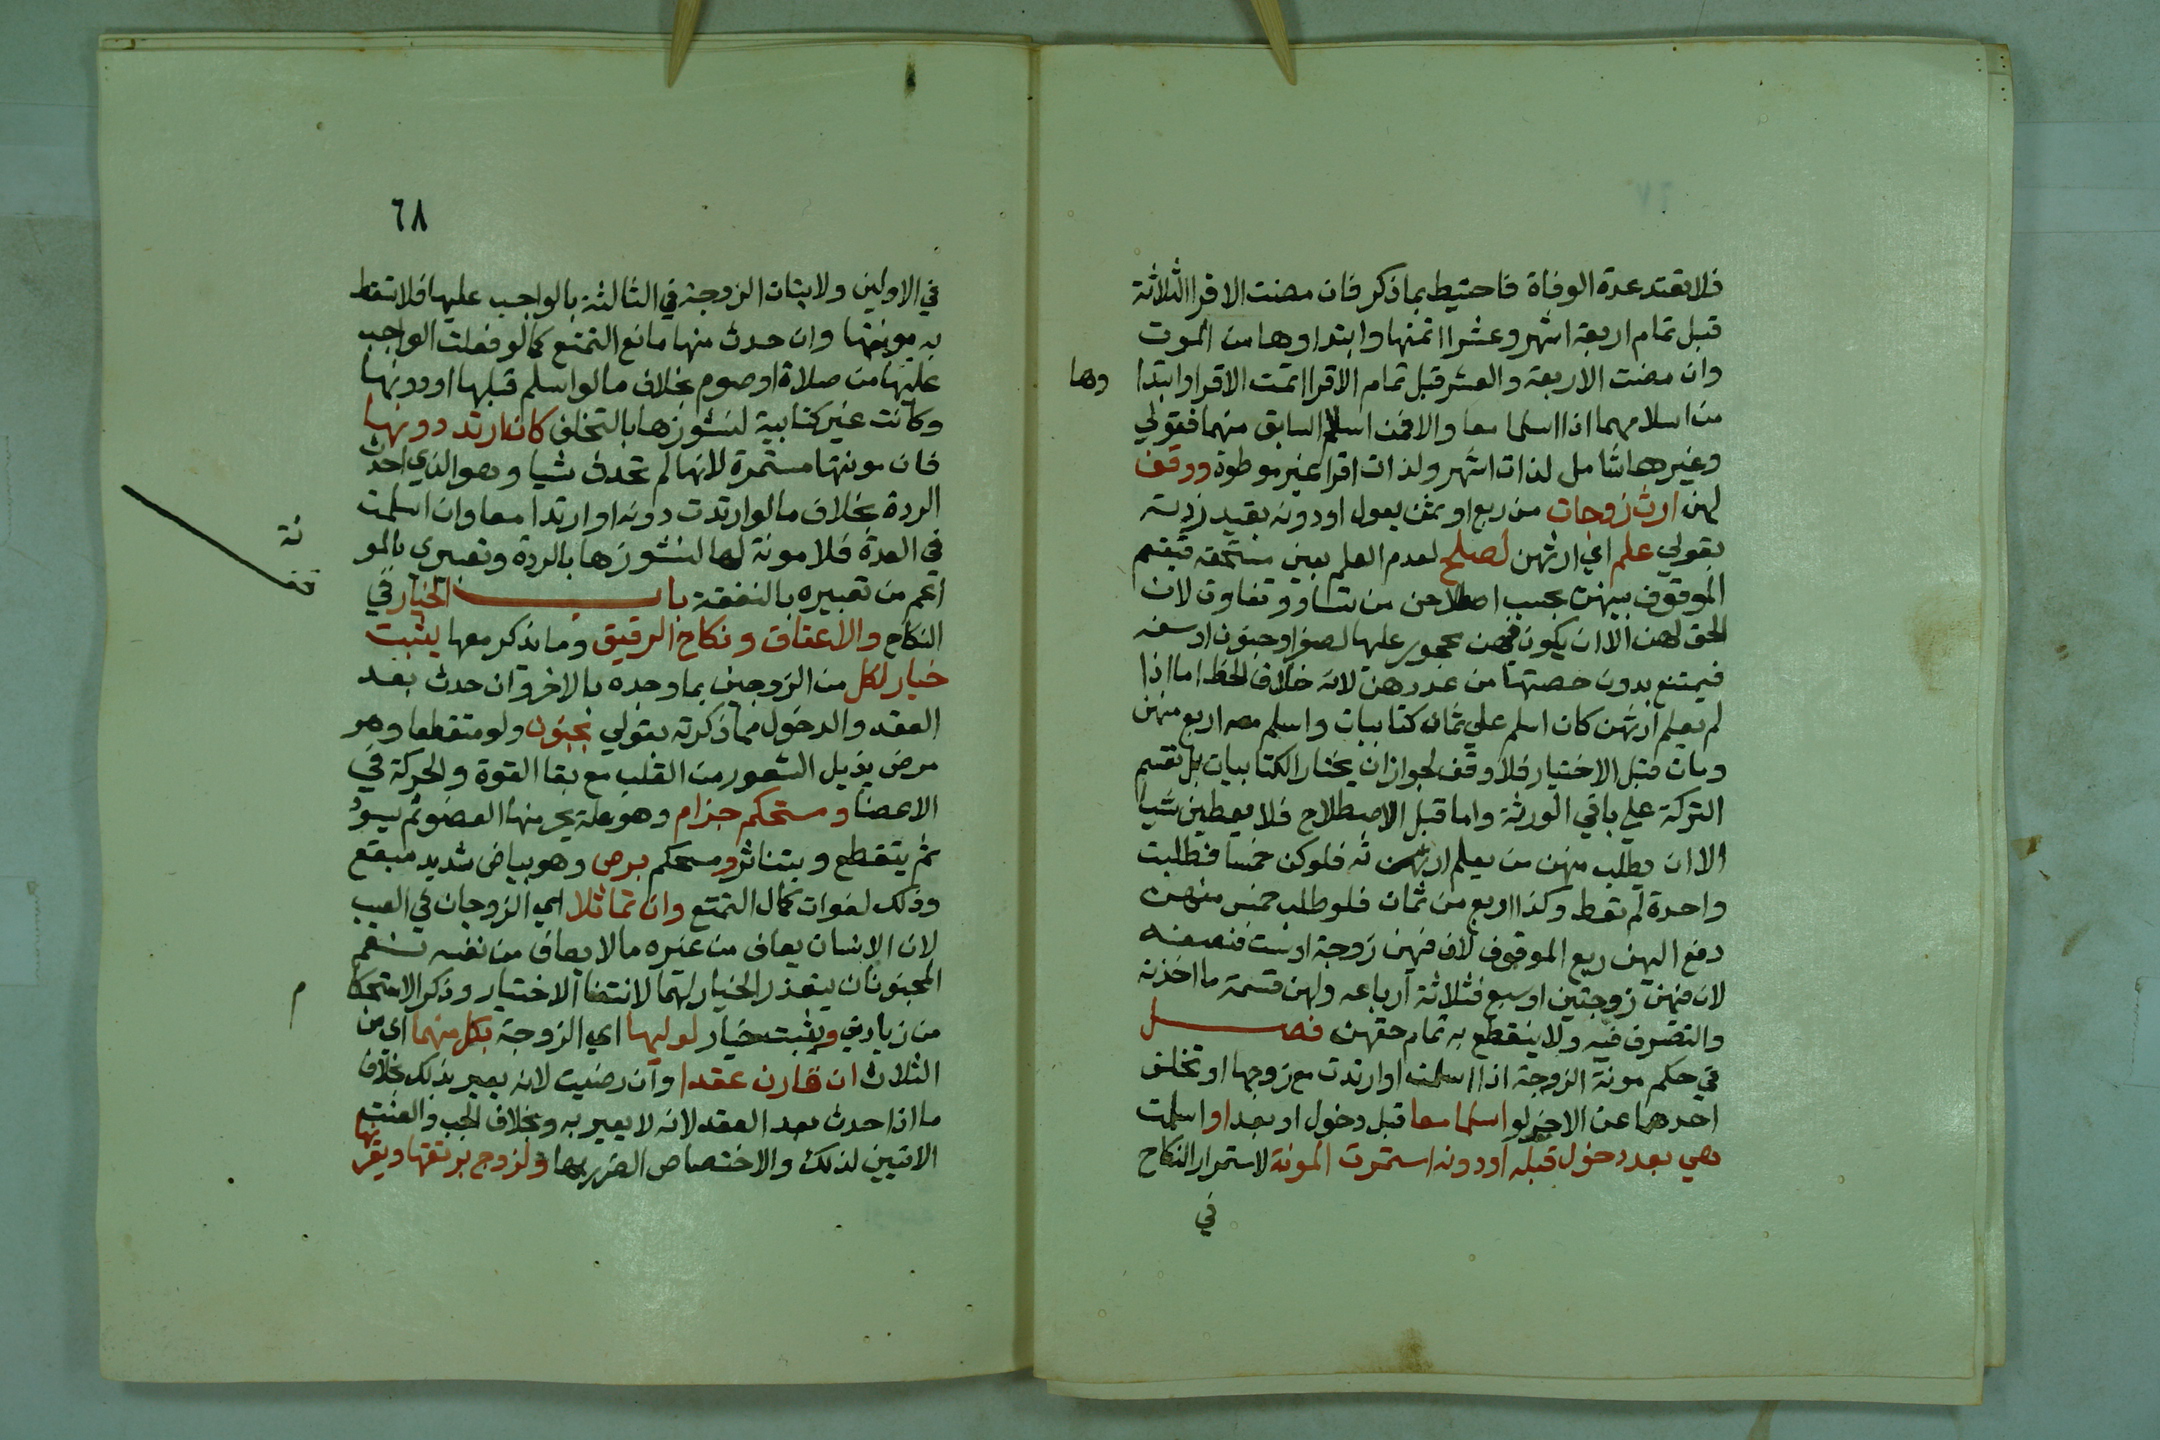 فلا تعتد عدة الوفاة فاحتيط بما ذكر فان مضت الاقرا الثلاثة
قبل تمام اربعة اشهر وعشرا اتمتها وابتداوها من الموت
وان مضت الاربعة والعشر قبل تمام الاقرا اتمت الاقرا وابتدا
وها
من اسلامهما اذا اسلما معا والا فمن اسلام السابق منهما فقولي
وغيرها شامل لذات اشهر ولذات اقرا غير موطوة ووقف
لهن ارث زوجات من ربع او ثمن بعول او دونه بقيد زدته
بقولي علم اي ارثهن لصلح لعدم العلم بعين مستحقه فيقسم
الموقوف بينهن بحسب اصطلاحهن من تساو وتفاوت لان
الحق لهن الا ان يكون فيهن محجور عليها لصغر او جنون او سفه
فيمتنع بدون حصتها من عددهن لانه خلاف الحظ اما اذا
لم يعلم ارثهن كان اسلم علي ثمان كتابيات واسلم معه اربع منهن
ومات قبل الاختيار فلا وقف لجواز ان يختار الكتابيات بل تقسم
التركة علي باقي الورثة واما قبل الاصطلاح فلا يعطين شيا
الا ان يطلب منهن من يعلم ارثهن فلو كن خمسا فطلبت
واحدة لم تعط وكذا اربع من ثمان فلو طلب خمس منهن
دفع اليهن ربع الموقوف لان فيهن زوجة او ست فنصفه
لان فيهن زوجتين او سبع فثلاثة ارباعه ولهن قسمة ما اخذنه
والتصرف فيه ولا ينقطع به تمام حقهن فصل
في حكم مونة الزوجة اذا اسلمت او ارتدت مع زوجها او تخلف
احدهما عن الاخر لو اسلما معا قبل دخول او بعد او اسلمت
هي بعد دخول قبله او دونه استمرت المونة لاستمرار النكاح
في
٦٨
في الاولين ولاتيان الزوجة في الثالثة بالواجب عليها فلا تسقط
به مونتها وان حدث منها مانع التمتع كما لو فعلت الواجب
عليها من صلاة او صوم بخلاف ما لو اسلم قبلها او دونها
وكانت غير كتابية لنشوزها بالتخلف كان ارتد دونها
فان مونتها مستمرة لانها لم تحدث شيا وهو الذي احدث
الردة بخلاف ما لو ارتدت دونه او ارتدا معا وان اسلمت
في العدة فلا مونة لها لنشوزها بالردة وتعبيري بالمو
نة
اعم من تعبيره بالنفقة باب الخيار في
النكاح والاعفاف ونكاح الرقيق وما يذكر معها يثبت
خيار لكل من الزوجين بما وجده بالاخر وان حدث بعد
العقد والدخول مما ذكرته بقولي بجنون ولو متقطعا وهو
مرض يزيل الشعور من القلب مع بقا القوة والحركة في
الاعضا ومستحكم جذام وهو علة يحمر منها العضو ثم يسود
ثم يتقطع ويتناثر ومستحكم برص وهو بياض شديد مبقع
وذلك لفوات كمال التمتع وان تماثلا اي الزوجان في العيب
لان الانسان يعاف من غيره ما لا يعاف من نفسه نعم
المجنونان يتعذر الخيار لهما لانتفا الاختيار وذكر الاستحكا
م
من زيادتي ويثبت خيار لوليها اي الزوجة بكل منهما اي من
الثلاث ان قارن عقدا وان رضيت لانه يعير بذلك بخلاف
ما اذا حدث بعد العقد لانه لا يعير به وبخلاف الجب والعنت
الاتيين لذلك والاختصاص الضرر بها ولزوج برتقها وبقرنها